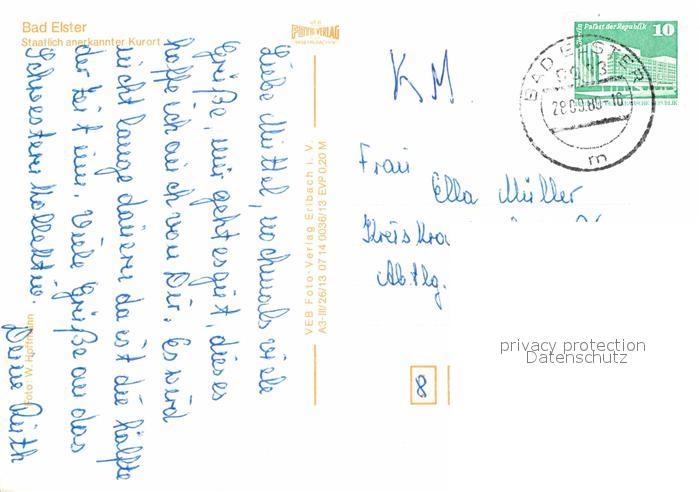 Bad Elster
Staatlich anerkannter Kurort
VEB
FOTO VERLAG
Liebe Mittel, nochmals viele
Grüße, mir geht es gut, dieses
hoffe ich auch von Dir. Es wird
nicht lange dauern da ist die Hälfte
der Zeit um. Viele Grüße an das
Schwesternkollektiv.
Deine Ruth
Foto: W. Hoffmann
VEB Foto-Verlag Erlbach i. V.
A3-III/26/13 07 14 0036/13 EVP 0,20 M
KM
Palast der Republik 10
BAD ELSTER
9933
28.09.89-10
m
Frau
Ella Müller
Kreiskra
Abtlg.
privacy protection
Datenschutz
8